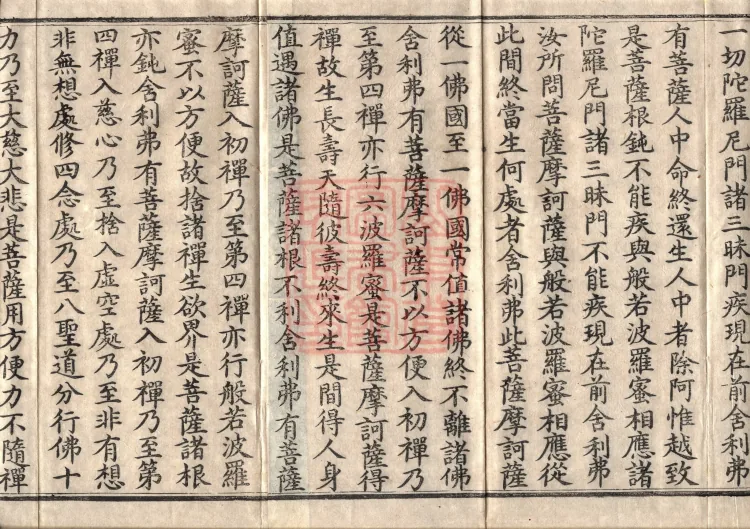 一切陀羅尼門諸三昧門疾現在前舍利弗
有菩薩人中命終還生人中者除阿惟越致
是菩薩根鈍不能疾與般若波羅蜜相應諸
陀羅尼門諸三昧門不能疾現在前舍利弗
汝所問菩薩摩訶薩與般若波羅蜜相應從
此間終當生何處者舍利弗此菩薩摩訶薩
從一佛國至一佛國常值諸佛終不離諸佛
舍利弗有菩薩摩訶薩不以方便入初禪乃
至第四禪亦行六波羅蜜是菩薩摩訶薩得
禪故生長壽天隨彼壽終來生是間得人身
值遇諸佛是菩薩諸根不利舍利弗有菩薩
摩訶薩入初禪乃至第四禪亦行般若波羅
蜜不以方便故捨諸禪生欲界是菩薩諸根
亦鈍舍利弗有菩薩摩訶薩入初禪乃至第
四禪入慈心乃至捨入虛空處乃至非有想
非無想處修四念處乃至八聖道分行佛十
力乃至大慈大悲是菩薩用方便力不隨禪